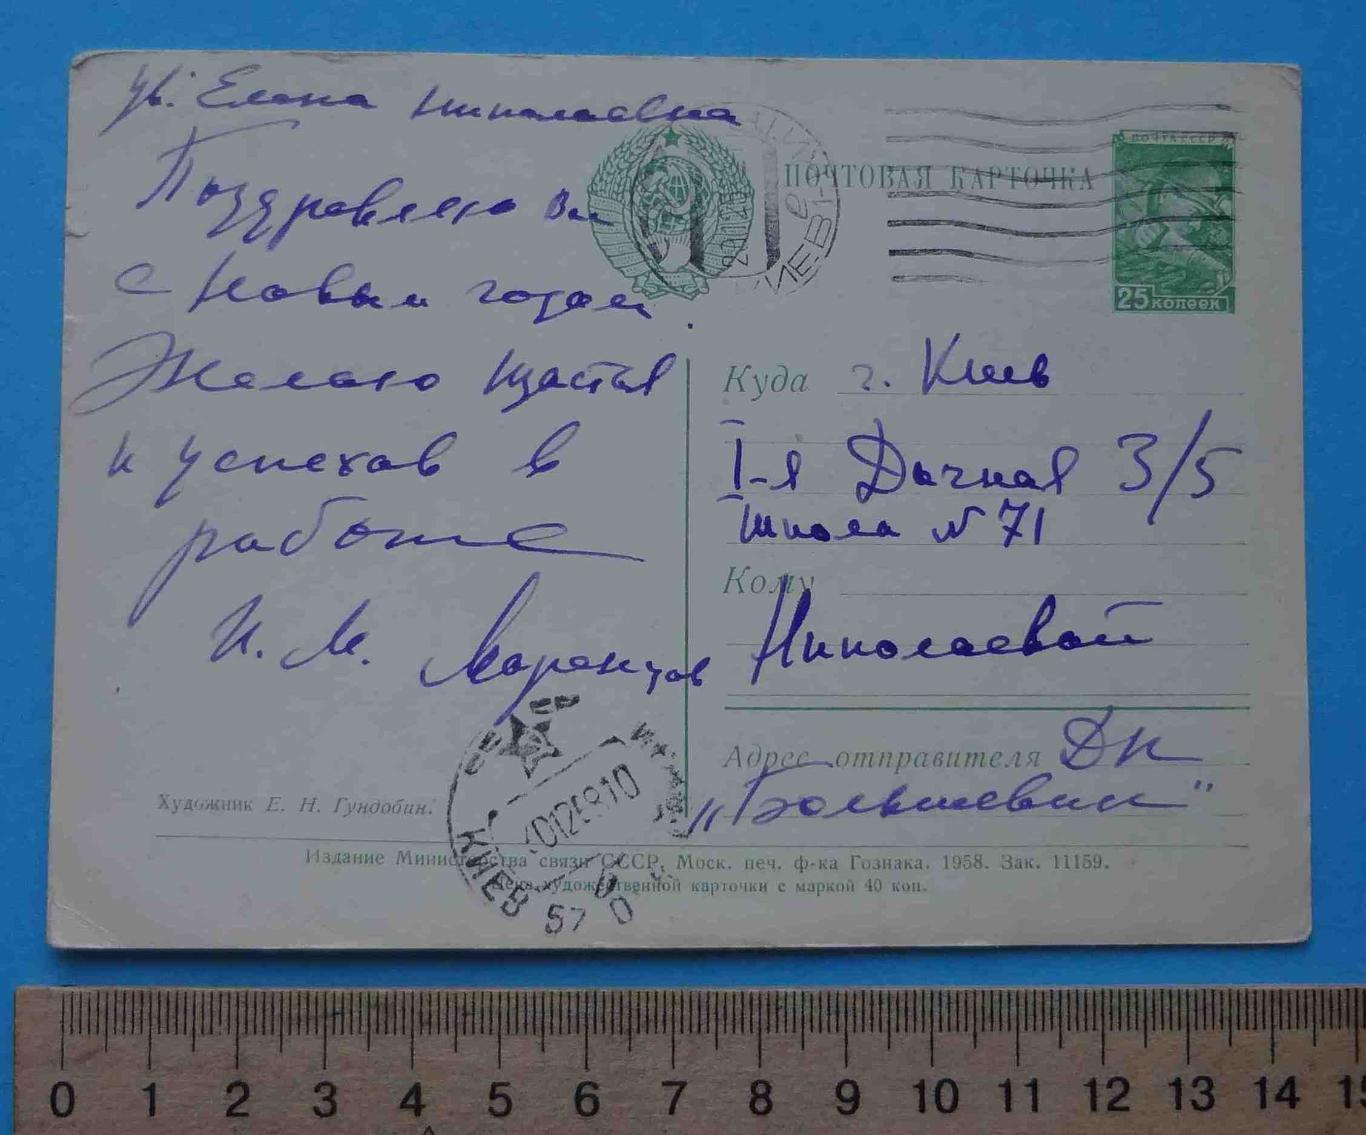 ув. Елена Николаевна
Поздравляю Вас
с Новым годом.
Желаю щастья
и успехов в
работе
И. М.
ПОЧТОВАЯ КАРТОЧКА
ПОЧТА СССР
25 КОПЕЕК
Куда г. Киев
I-я Дачная 3/5
школа N 71
Кому
Николаевой
Адрес отправителя ДК
„Большевик"
Художник Е. Н. Гундобин.
КИЕВ 57
Издание Министерства связи СССР. Моск. печ. ф-ка Гознака. 1958. Зак. 11159.
Цена художественной карточки с маркой 40 коп.
0 1 2 3 4 5 6 7 8 9 10 11 12 13 14 15